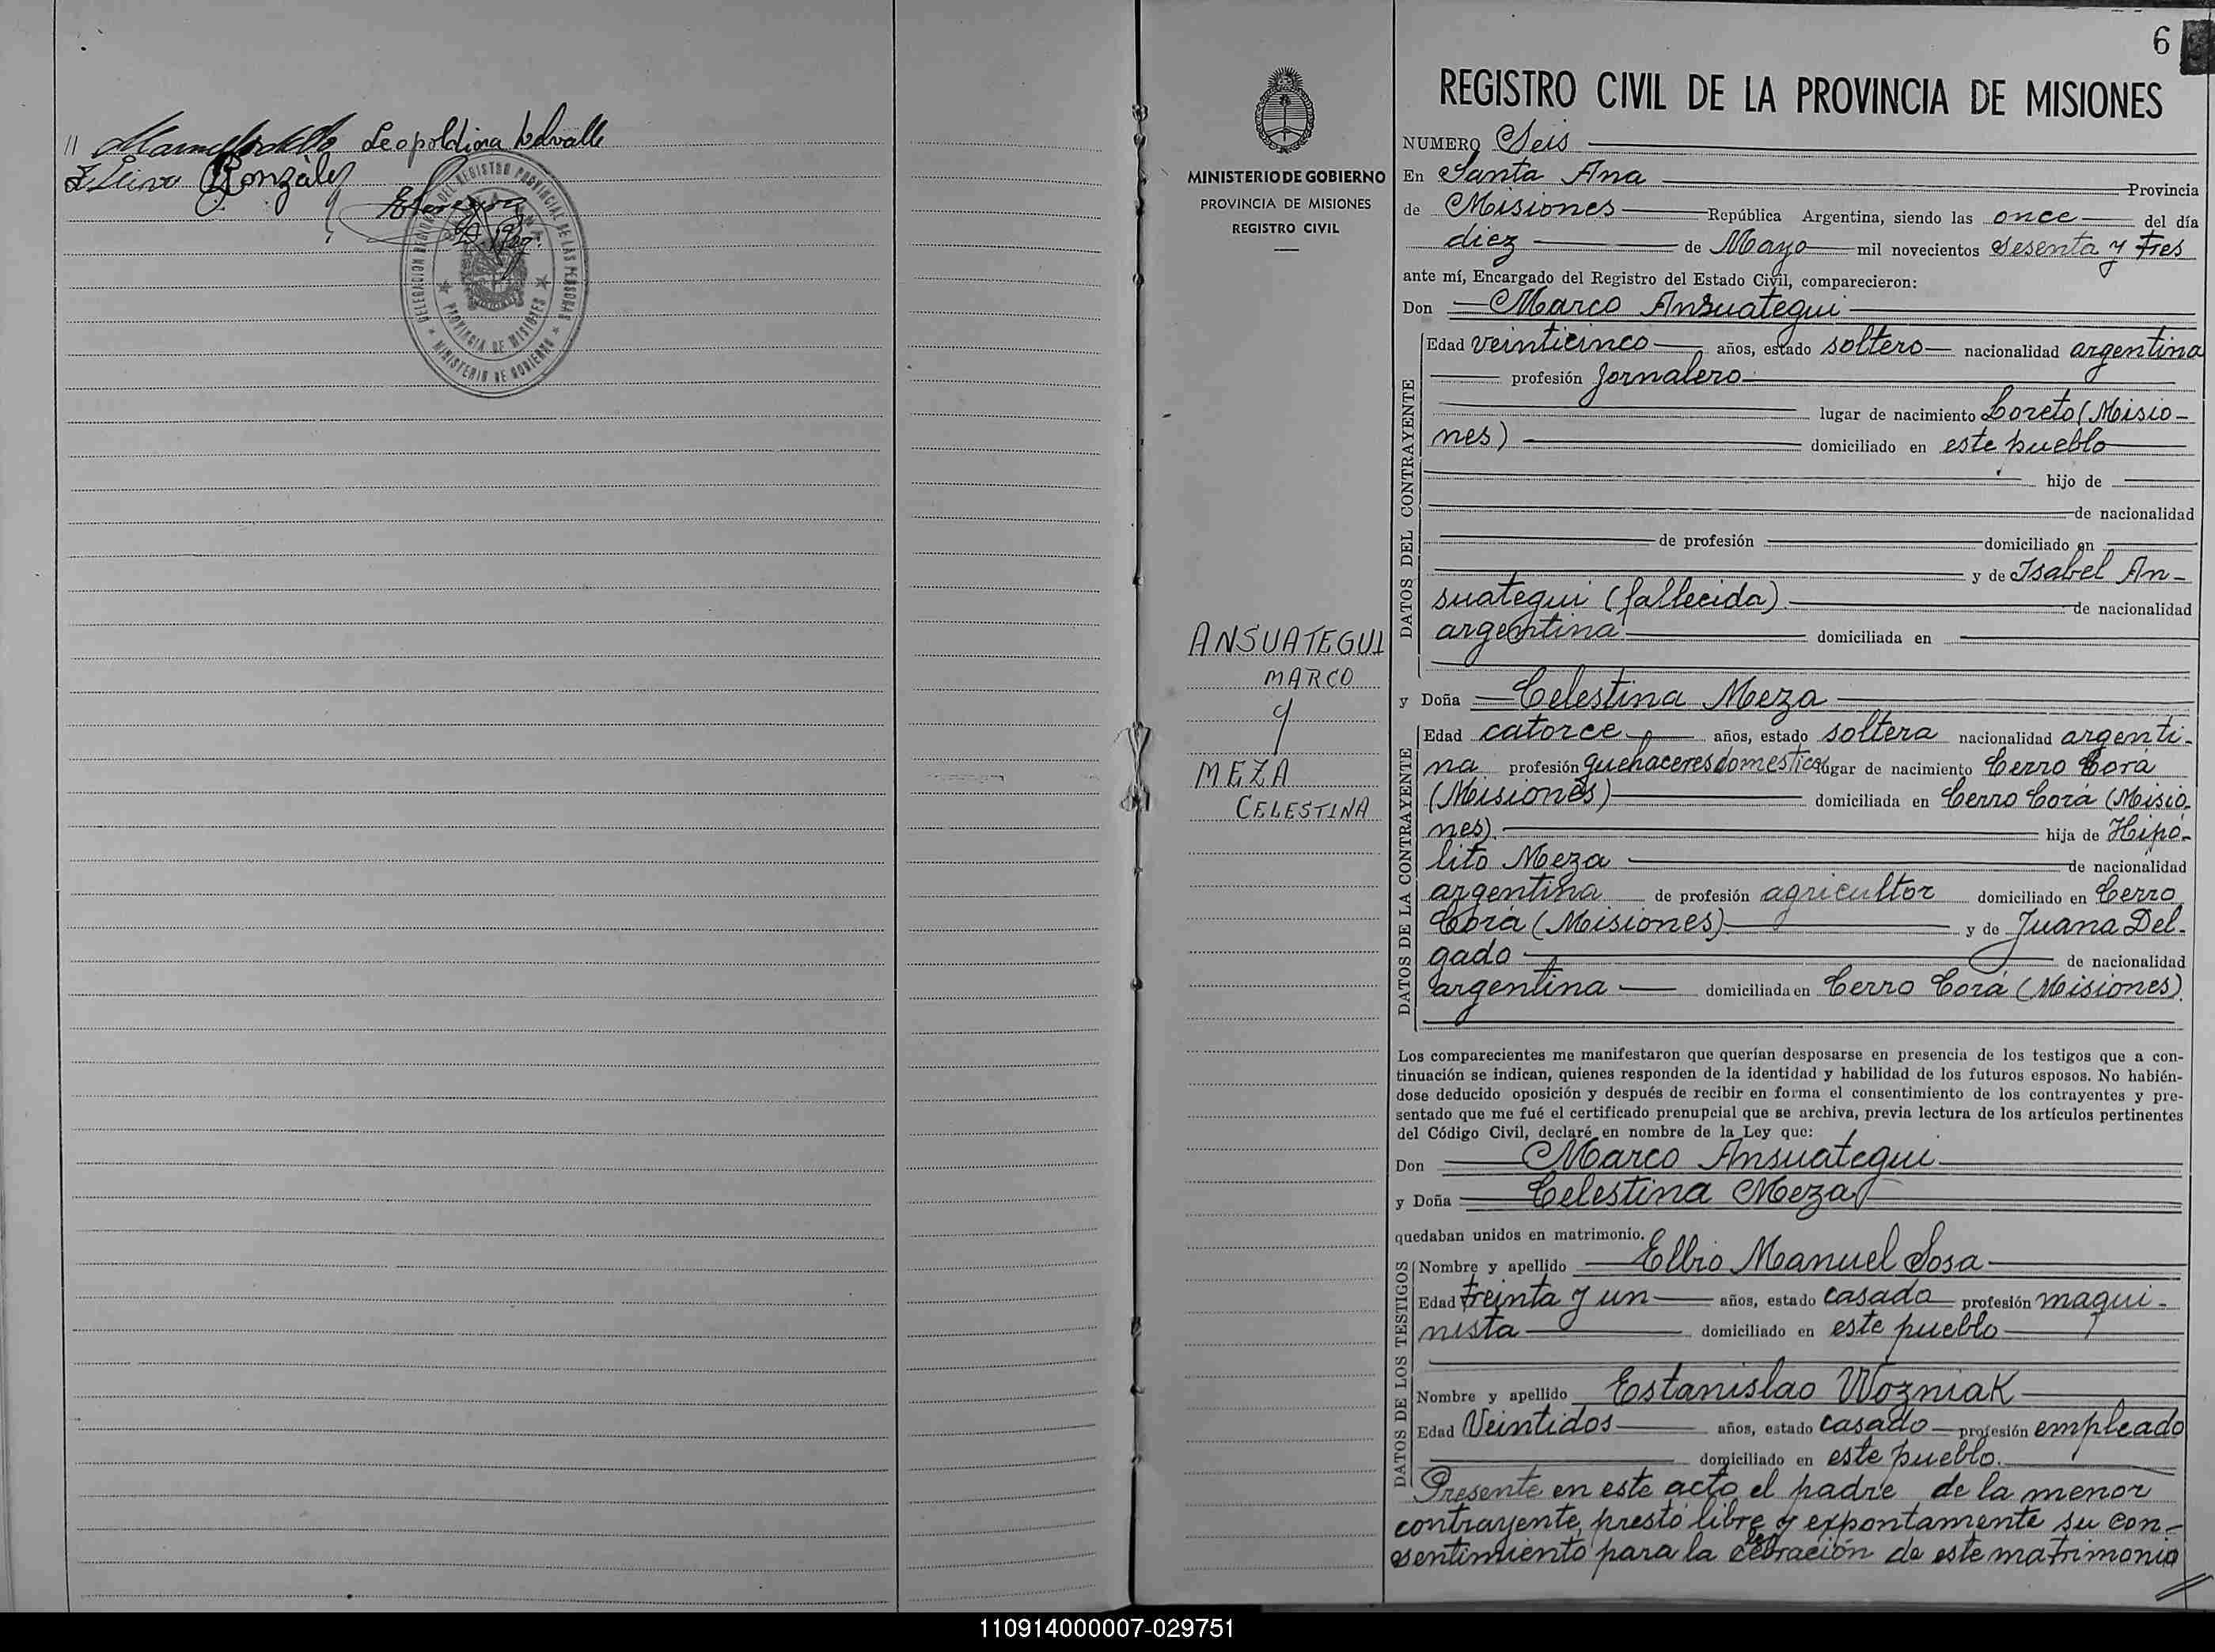 Leopoldina Delvalle
González
DELEGACION REGIONAL DEL REGISTRO PROVINCIAL DE LAS PERSONAS
PROVINCIA DE MISIONES
MINISTERIO DE GOBIERNO
MINISTERIO DE GOBIERNO
PROVINCIA DE MISIONES
REGISTRO CIVIL
ANSUATEGUI
MARCO
y
MEZA
CELESTINA
6
REGISTRO CIVIL DE LA PROVINCIA DE MISIONES
NUMERO Seis
En Santa Ana Provincia
de Misiones República Argentina, siendo las once del día
diez de Mayo mil novecientos sesenta y tres
ante mí, Encargado del Registro del Estado Civil, comparecieron:
Don Marco Ansuategui
DATOS DEL CONTRAYENTE
Edad veinticinco años, estado soltero nacionalidad argentina
profesión Jornalero
lugar de nacimiento Loreto (Misio-
nes) domiciliado en este pueblo
hijo de
de nacionalidad
de profesión domiciliado en
y de Isabel An-
suategui (fallecida) de nacionalidad
argentina domiciliada en
y Doña Celestina Meza
DATOS DE LA CONTRAYENTE
Edad catorce años, estado soltera nacionalidad argenti-
na profesión quehaceres domesticos lugar de nacimiento Cerro Corá
(Misiones) domiciliada en Cerro Corá (Misio-
nes). hija de Hipó-
lito Meza de nacionalidad
argentina de profesión agricultor domiciliado en Cerro
Corá (Misiones) y de Juana Del-
gado de nacionalidad
argentina domiciliada en Cerro Corá (Misiones).
Los comparecientes me manifestaron que querían desposarse en presencia de los testigos que a con-
tinuación se indican, quienes responden de la identidad y habilidad de los futuros esposos. No habién-
dose deducido oposición y después de recibir en forma el consentimiento de los contrayentes y pre-
sentado que me fué el certificado prenupcial que se archiva, previa lectura de los artículos pertinentes
del Código Civil, declaré en nombre de la Ley que:
Don Marco Ansuategui
y Doña Celestina Meza
quedaban unidos en matrimonio.
DATOS DE LOS TESTIGOS
Nombre y apellido Elbio Manuel Sosa
Edad treinta y un años, estado casado profesión maqui-
nista domiciliado en este pueblo
Nombre y apellido Estanislao Wozniak
Edad Veintidos años, estado casado profesión empleado
domiciliado en este pueblo.
Presente en este acto el padre de la menor
contrayente, prestó libre y expontamente su con-
sentimiento para la celebración de este matrimonio
110914000007-029751